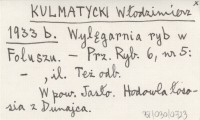 KULMATYCKI Włodzimierz x
1933 b. Wylęgarnia ryb w
Foluszu. - Prz. Ryb. 6, nr 5:
- , il. Też odb.
W pow. Jasło. Hodowla łoso-
sia z Dunajca.